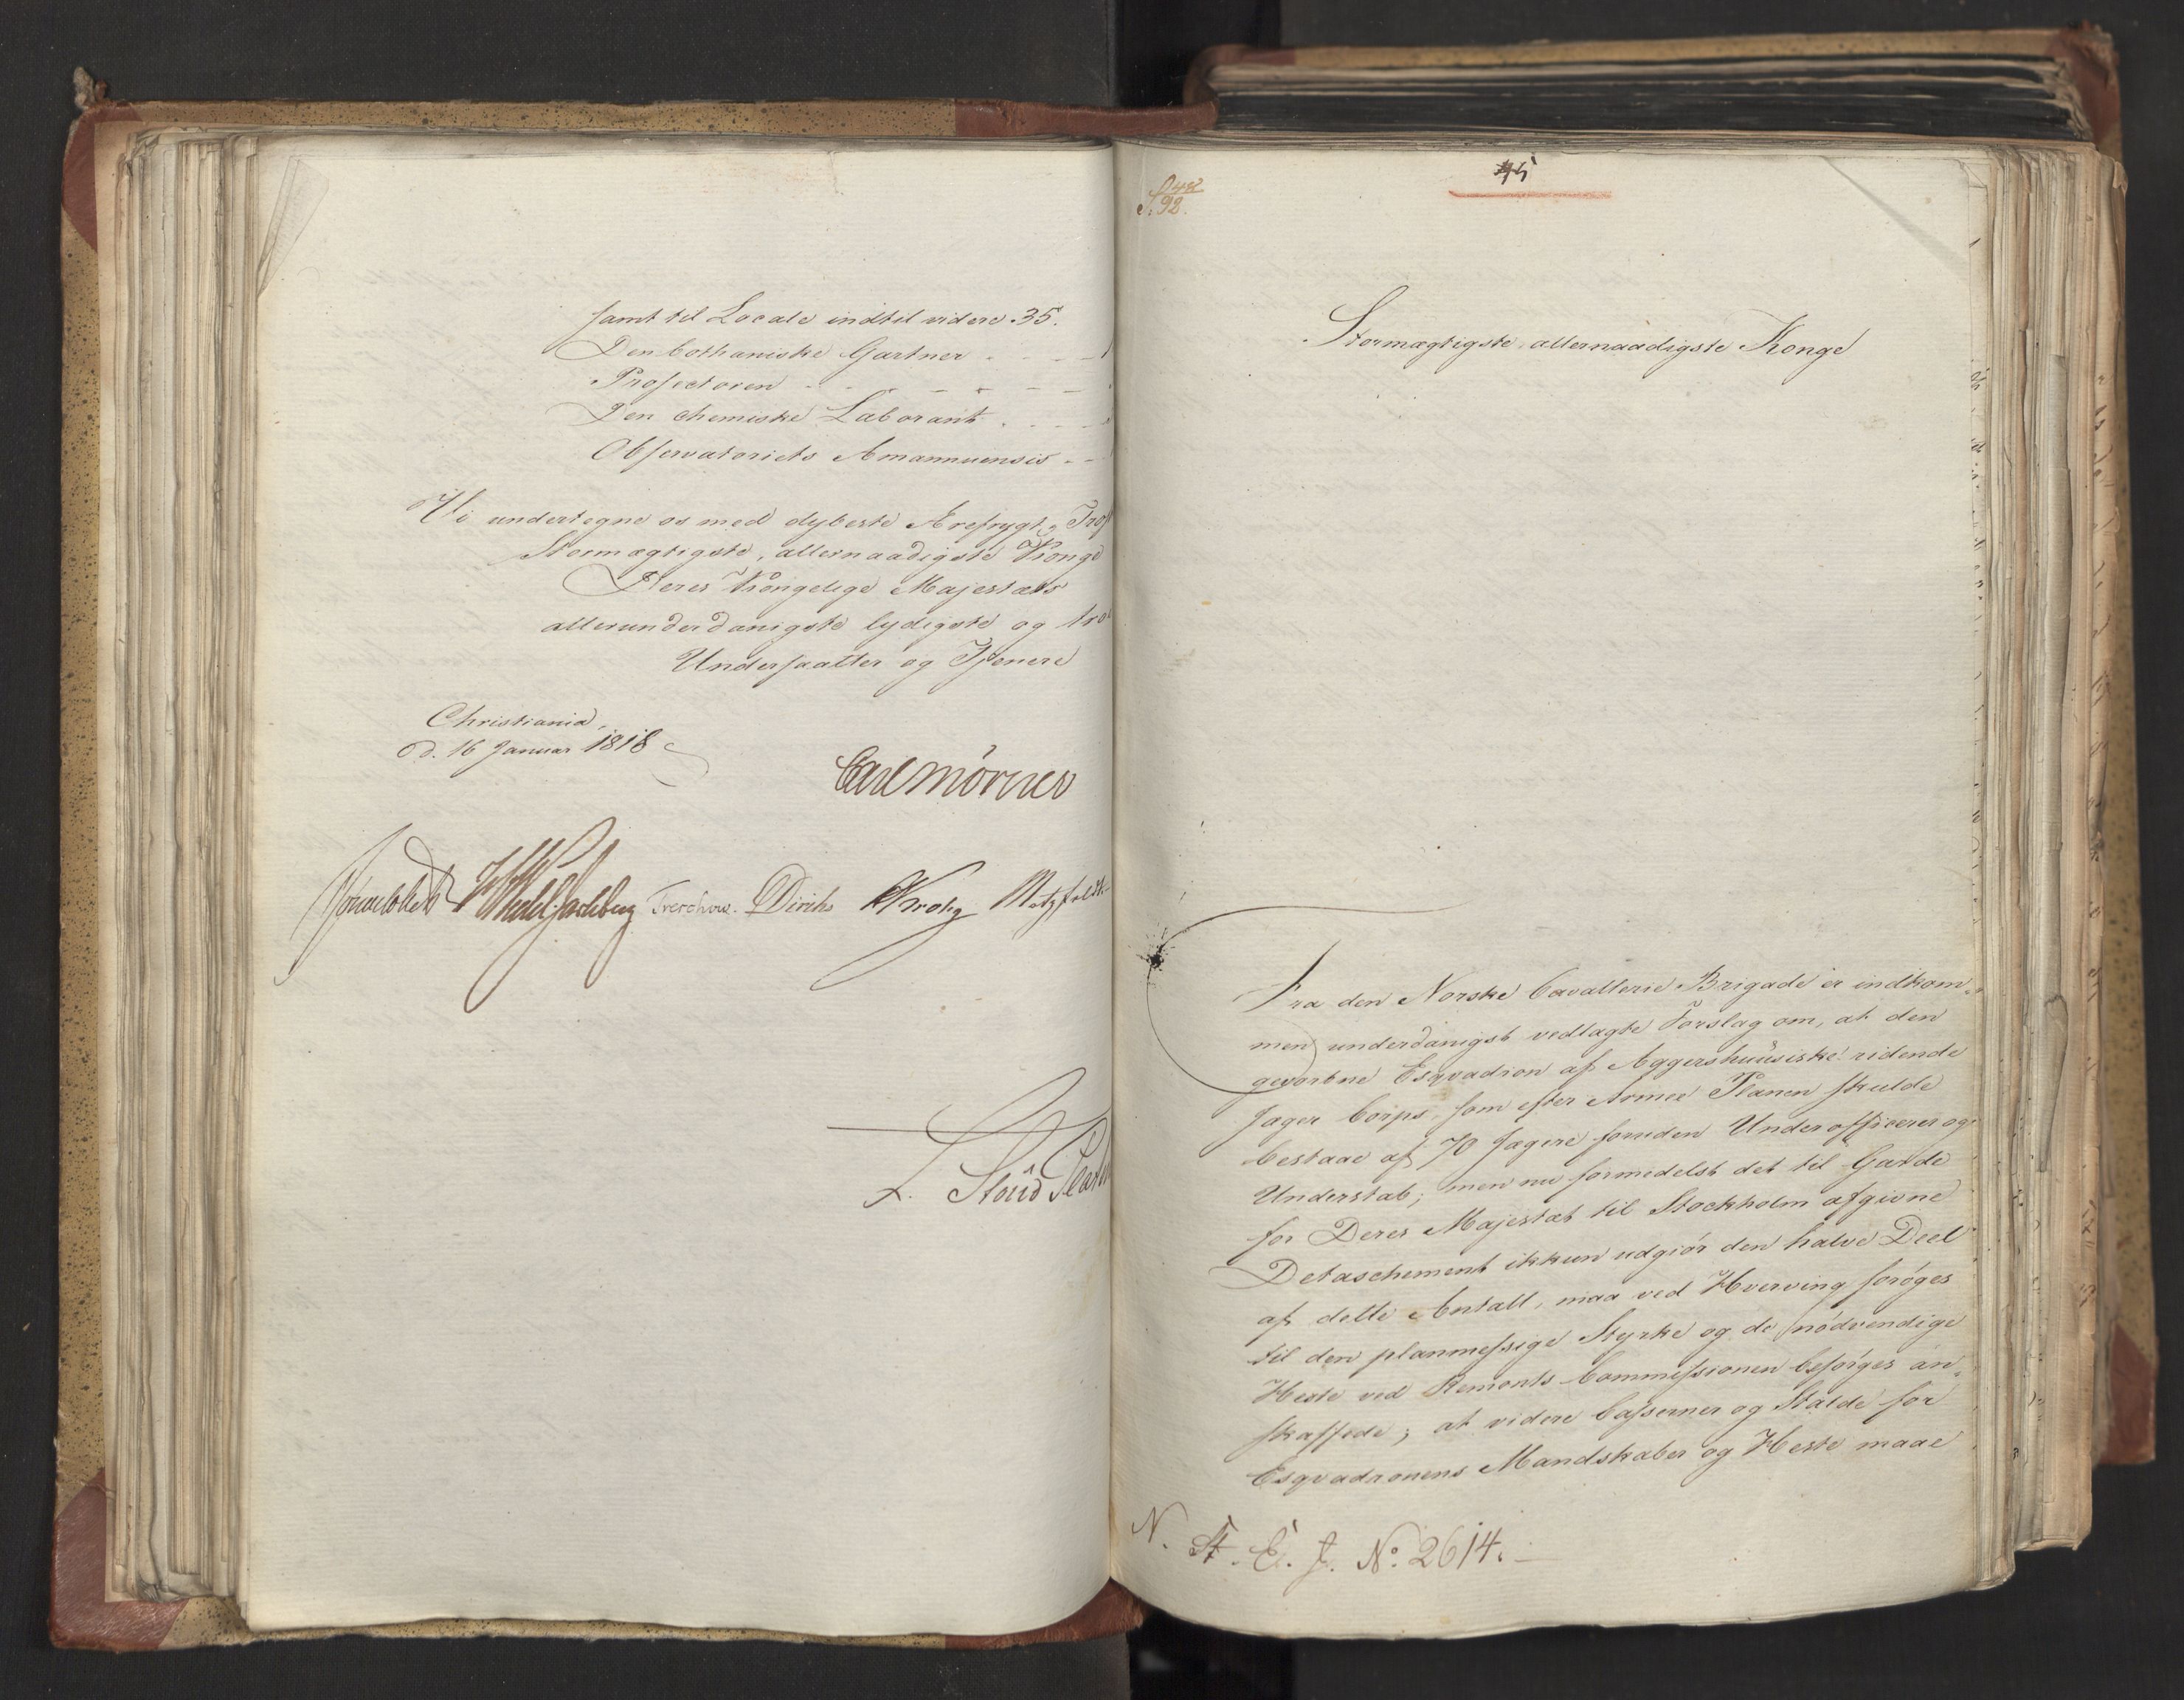 samt til Locale indtil videre 35.
Den bothaniske Gartner
Prosectoren
Den chemiske Laborant
Observatoriets Amannuensis
Vi undertegne os med dybeste Ærefrygt,
Stormægtigste, allernaadigste Konge
Deres Kongelige Majestæts
allerunderdanigste lydigste og
Undersaatter og Tjenere
Christiania,
d. 16 Januar 1818
Carl Mörner
Sommerhielm WedelJarlsberg Treschow. Diriks Krohg Motzfeldt
L. Stoud Plat
S. 42/92.
45
Stormægtigste allernaadigste Konge
Fra den Norske Cavallerie Brigade er indkom„
men underdanigst vedlagte Forslag om, at den
gevorbne Esqvadron af Aggershuusiske ridende
Jæger Corps, som efter Armee Planen skulde
bestaae af 70 Jægere foruden Underofficerer og
Understab; men nu formedelst det til Garde
for Deres Majestæt til Stockholm afgivne
Detaschement ikkun udgiör den halve Deel
af dette Antall, maa ved Hverving forøges
til den planmessige Styrke og de nødvendige
Heste ved Remonte Commissionen besørges an„
skaffede; at videre Casserner og Stalde for
Esqvadronens Mandskaber og Heste maae
N. St. E. J. No. 2614.